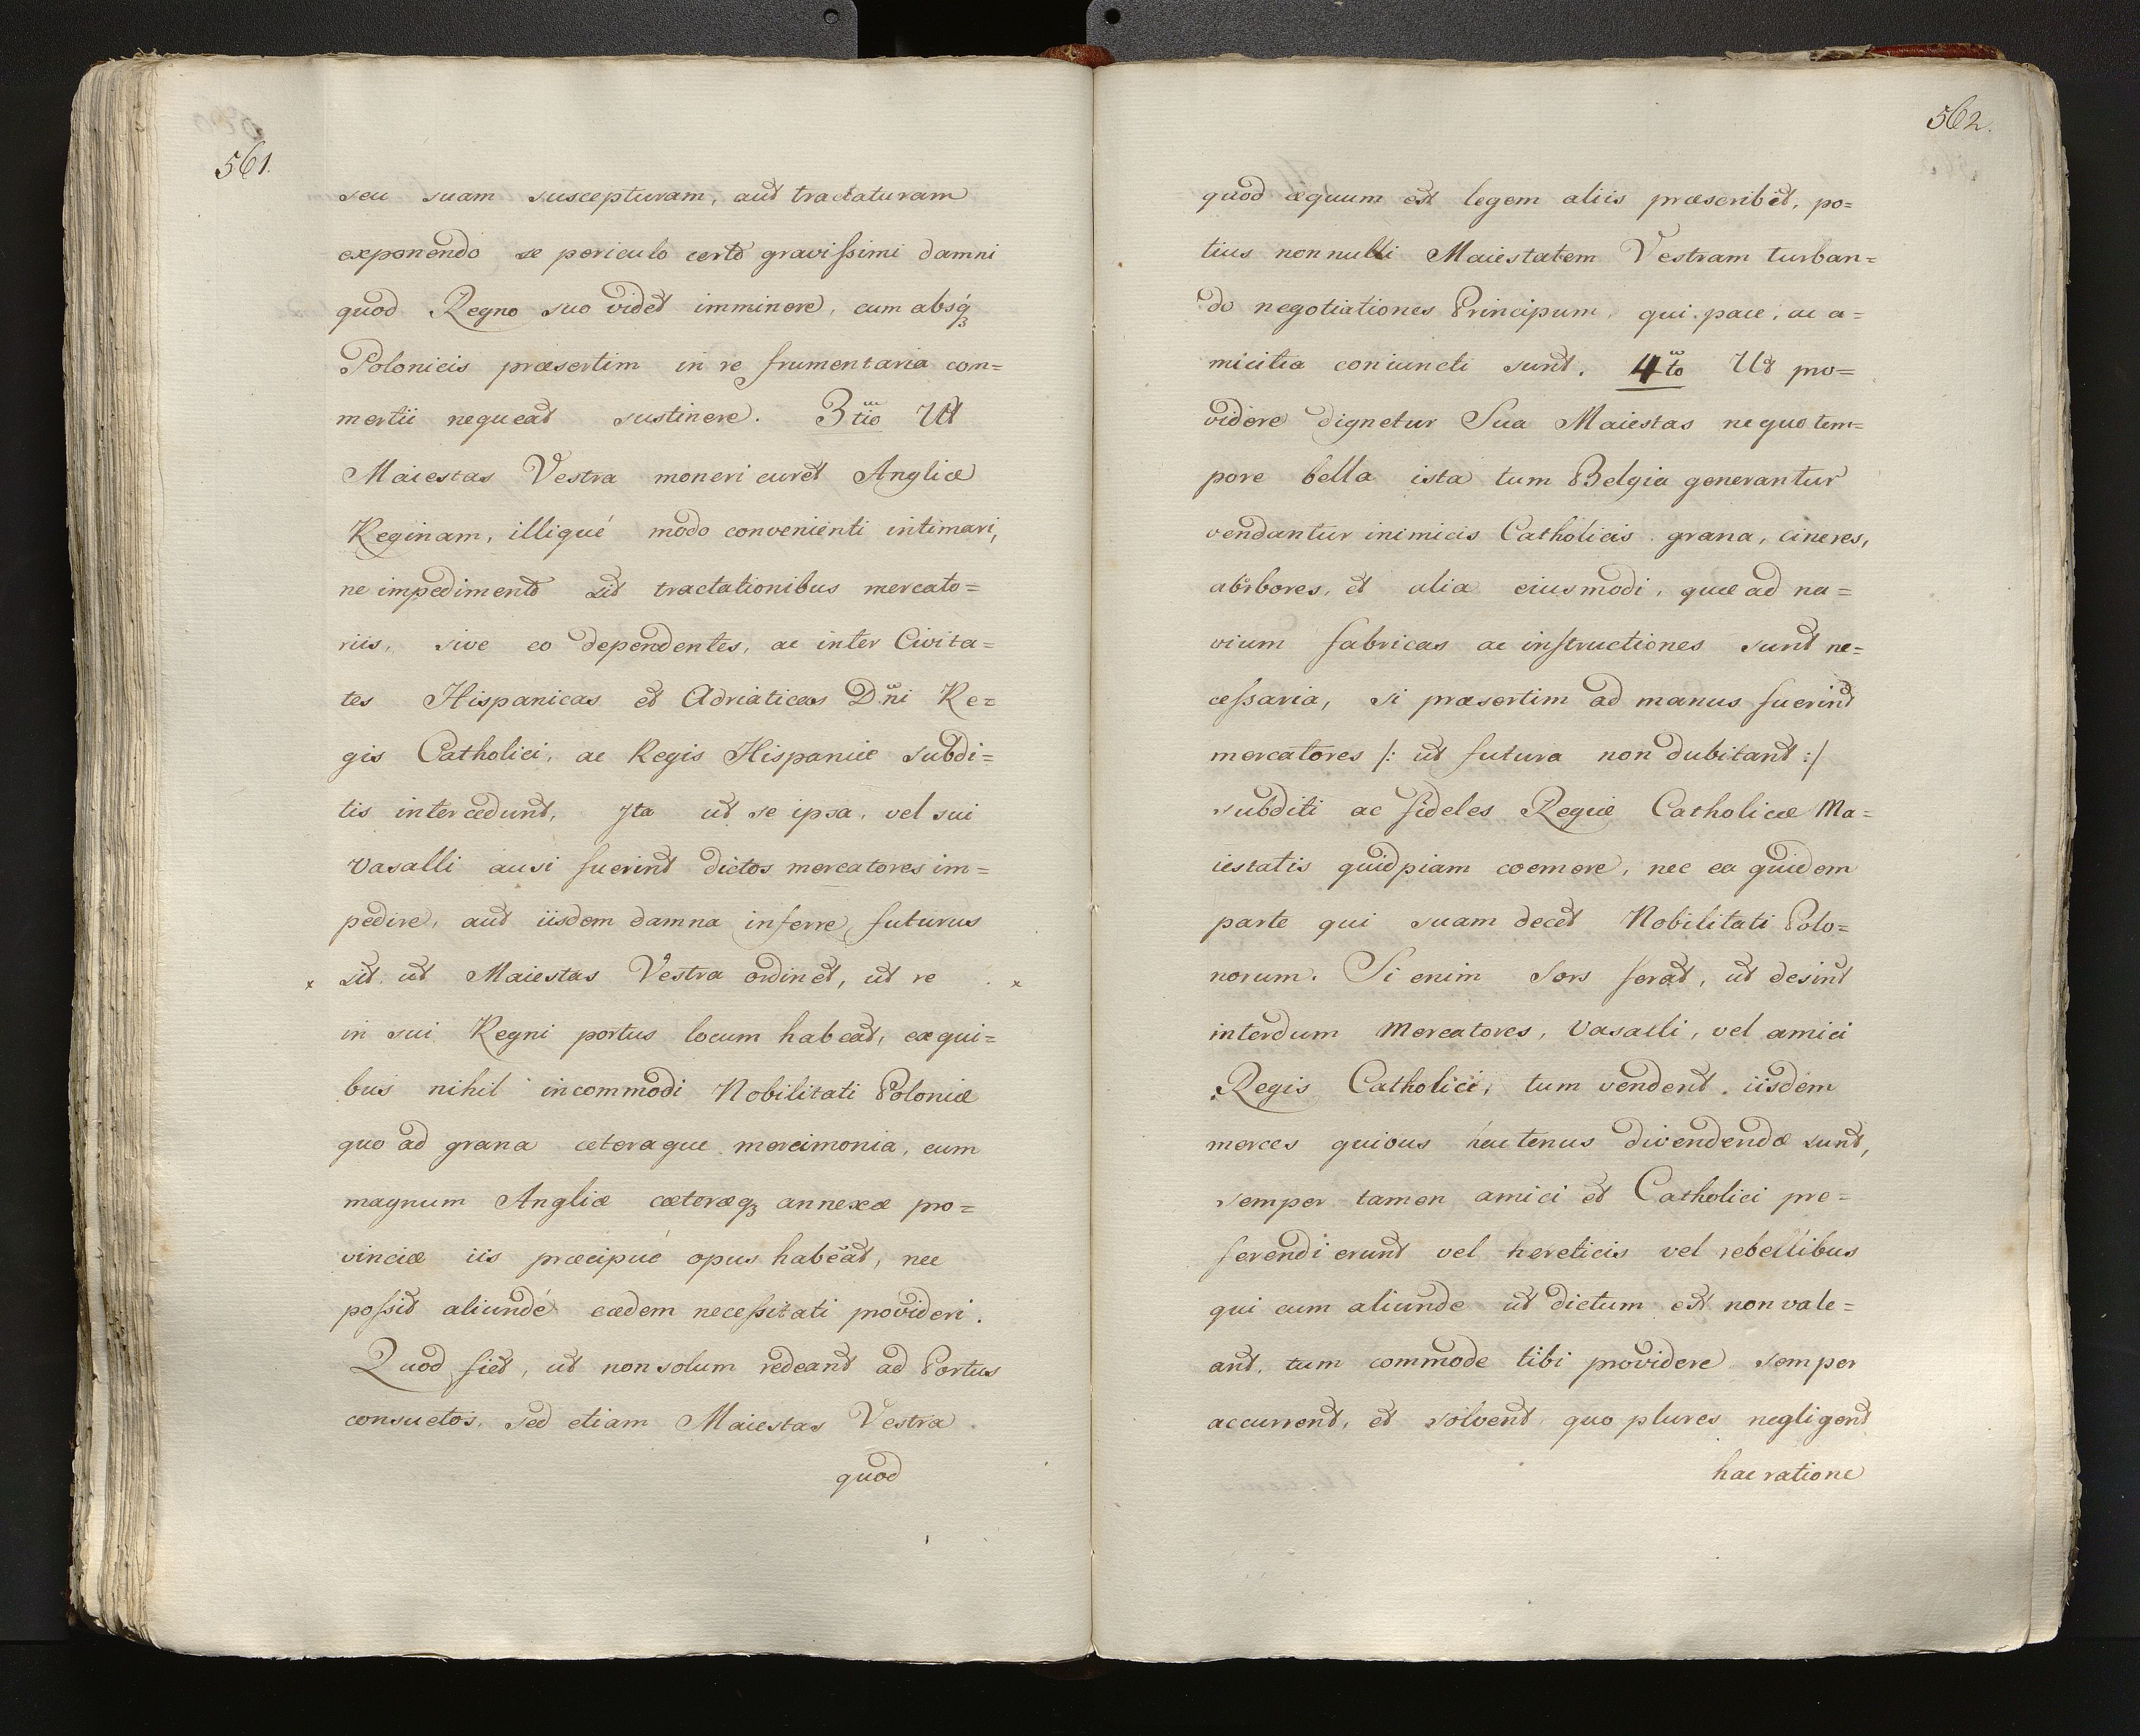 561.
seu suam suscepturam, aut tractaturam
exponendo se periculo certo gravissimi damni
quod Regno suo videt imminere, cum absq́ꝫ
Polonicis præsertim in re frumentaria com=
mertii nequeat sustinere. 3tio Ut
Maiestas Vestra moneri curet Angliæ
Reginam, illiqué modo convenienti intimari,
ne impedimento sit tractationibus mercato=
riis, sive eo dependentes, ac inter Civita=
tes Hispanicas et Adriaticas Dni Re=
gis Catholici, ac Regis Hispaniæ subdi=
tis intercedunt, Ita ut se ipsa, vel sui
Vasalli ausi fuerint dictos mercatores im=
pedire, aut iisdem damna inferre, futurus
x sit. ut Maiestas Vestra ordinet, ut re x
in sui Regni portus locum habeat, ex qui=
bus nihil incommodi Nobilitati Poloniæ
quo ad grana ceteraque mercimonia, cum
magnum Angliæ cæteræqꝫ annexæ pro=
vinciæ iis præcipué opus habeat, nec
possit aliundé eædem necessitati provideri.
Quod fiet, ut non solum redeant ad Portus
consuetos, sed etiam Maiestas Vestra
quod
562.
quod æquum est legem aliis præscribet, po=
tius non nulli Maiestatem Vestram turban=
do negotiationes Principum, qui pace, ac a=
micitia coniuncti sunt. 4to Ut pro=
videre dignetur Sua Maiestas ne quo tem=
pore bella ista tum Belgia generantur
vendantur inimicis Catholicis grana, cineres,
abrbores, et alia eiusmodi, quæ ad na=
vium fabricas ac instructiones sunt ne=
cessaria, si præsertim ad manus fuerint
mercatores /: ut futura non dubitant :/
subditi ac fideles Regiæ Catholicæ Ma=
iestatis quidpiam coemere, nec ea quidem
parte qui suam decet Nobilitati Polo=
norum. Si enim sors ferat, ut desint
interdum Mercatores, Vasalli, vel amici
Regis Catholici, tum vendent iisdem
merces quious hactenus divendendæ sunt,
semper tamen amici et Catholici pre=
ferendi erunt vel hereticis vel rebellibus
qui cum aliunde ut dictum est non vale=
ant, tum commode tibi providere semper
accurrent, et solvent quo plures negligent
hac ratione